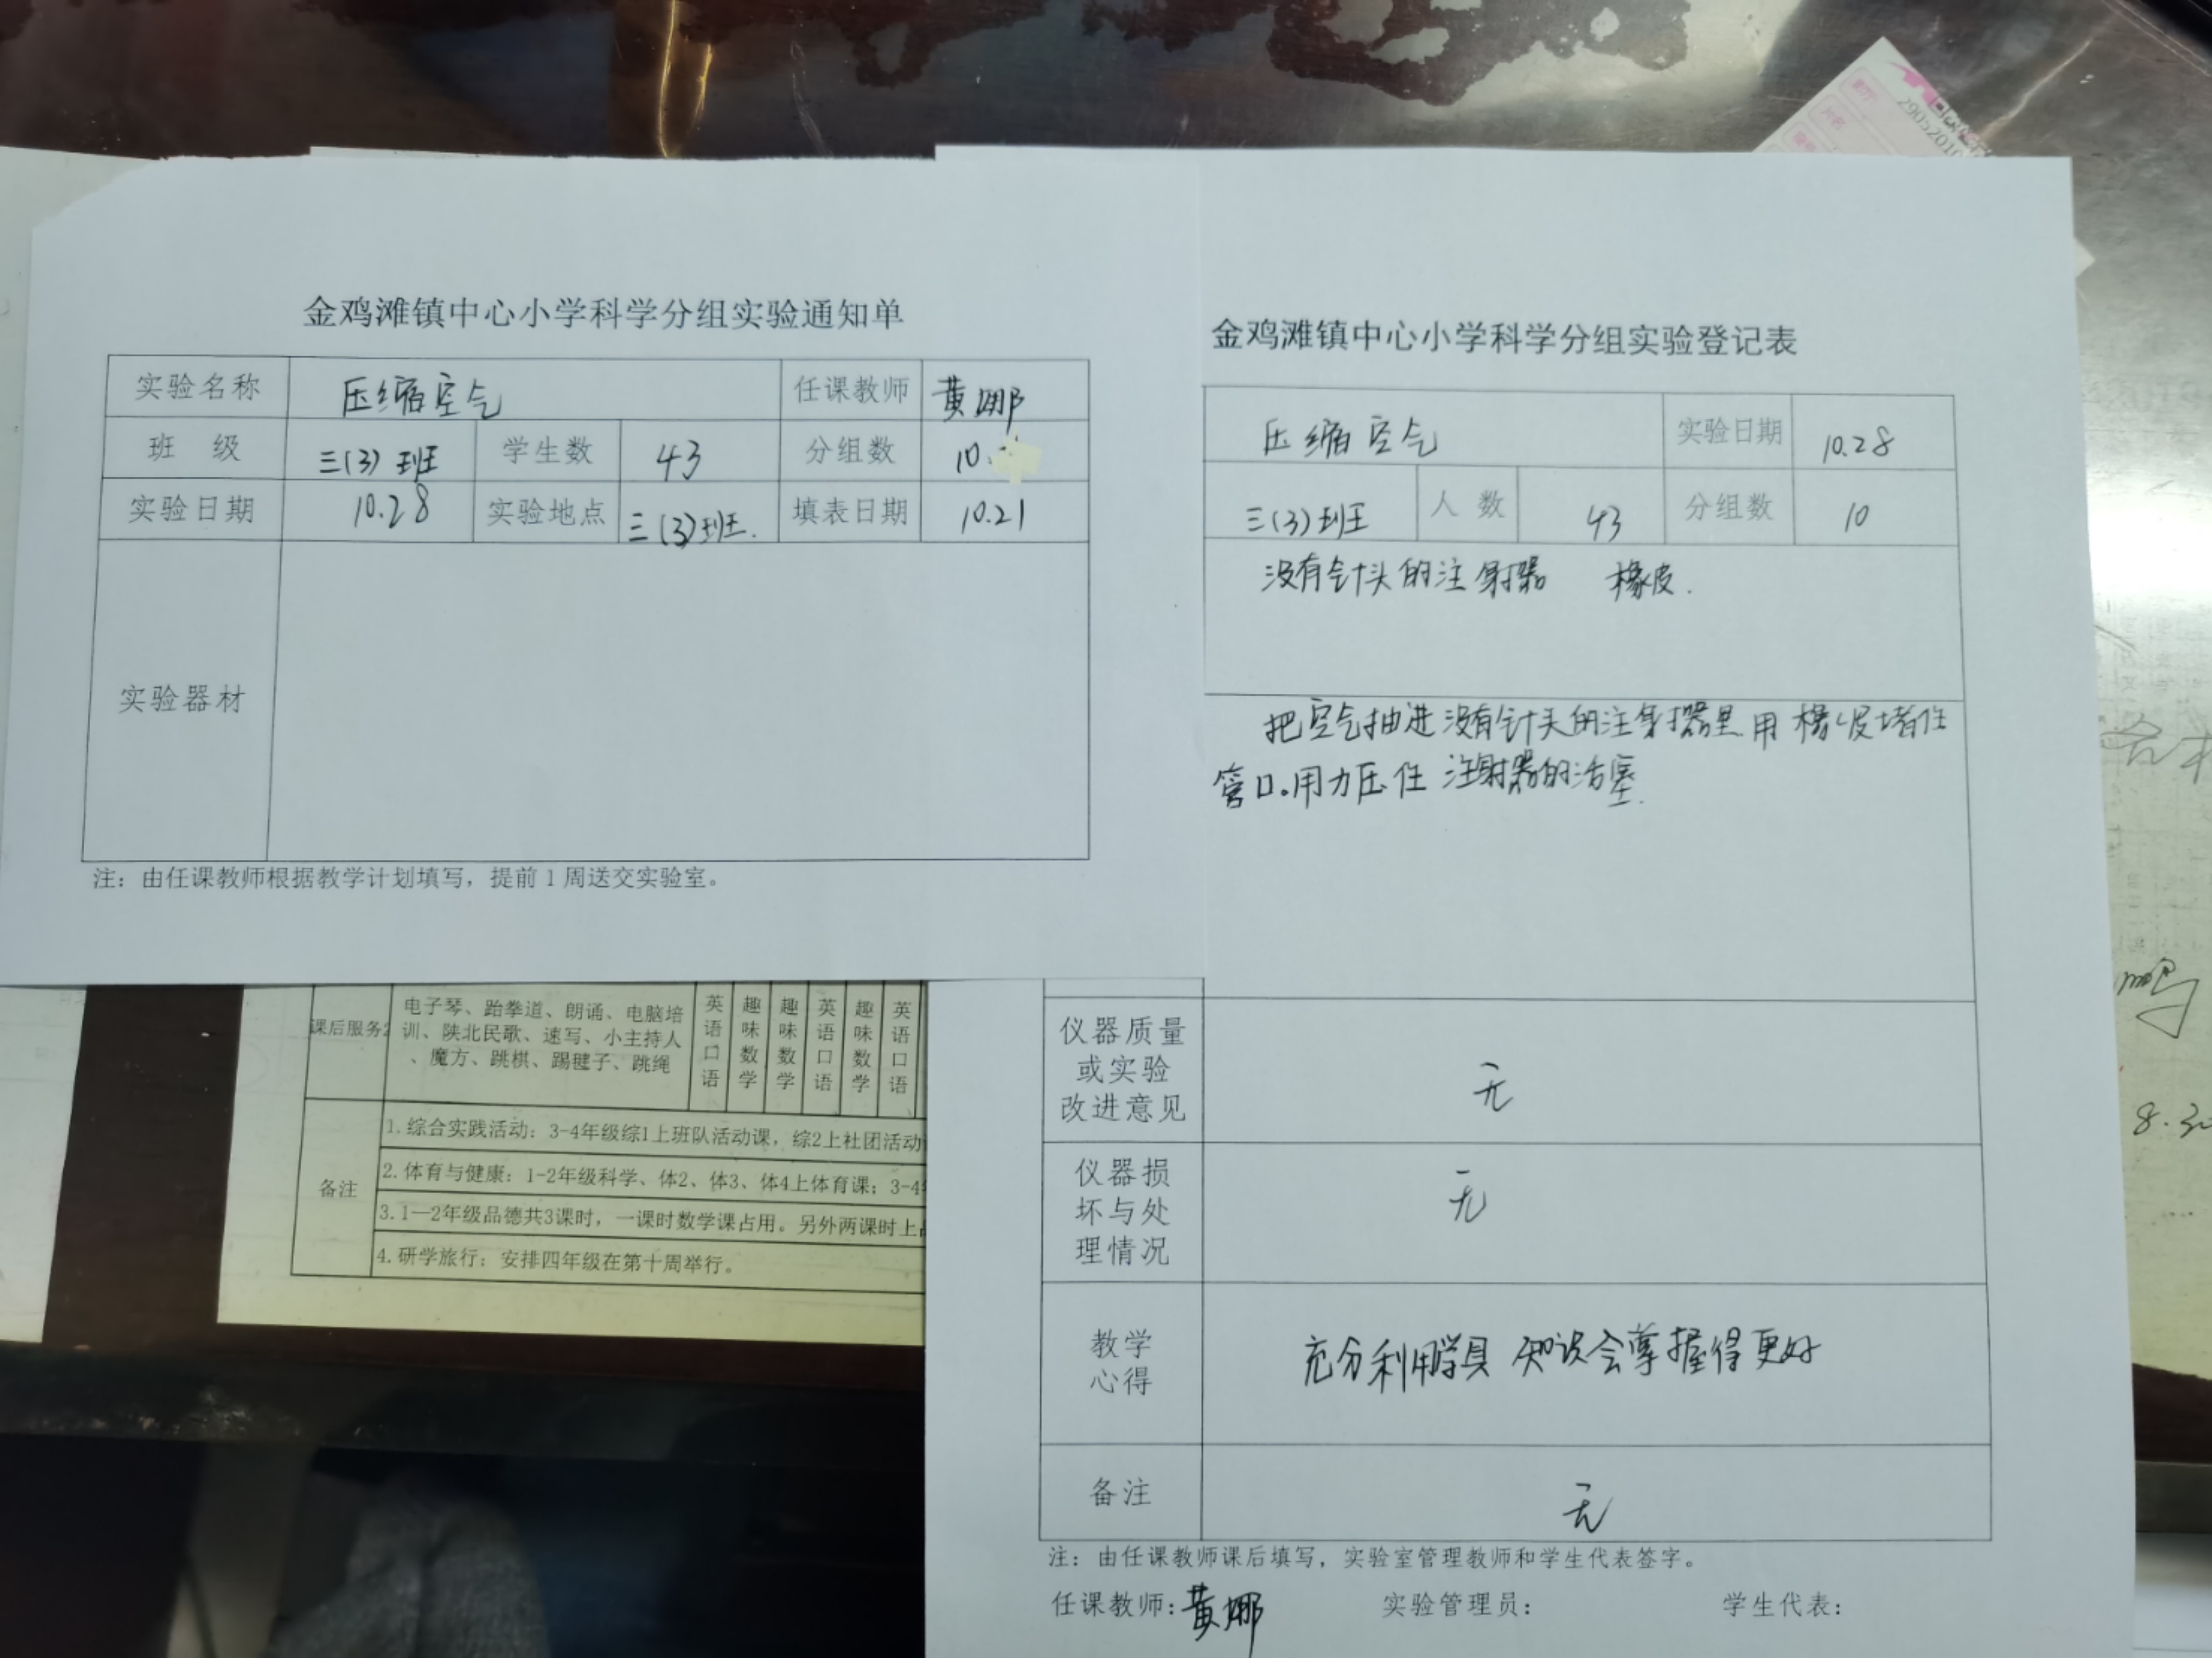 金鸡滩镇中心小学科学分组实验通知单
实验名称 压缩空气 任课教师 黄娜
班 级 三(3)班 学生数 43 分组数 10
实验日期 10.28 实验地点 三(3)班. 填表日期 10.21
实验器材
注：由任课教师根据教学计划填写，提前1周送交实验室。
金鸡滩镇中心小学科学分组实验登记表
压缩空气 实验日期 10.28
三(3)班 人数 43 分组数 10
没有针头的注射器 橡皮.
把空气抽进没有针头的注射器里用橡皮堵住
管口。用力压住注射器的活塞.
仪器质量
或实验
改进意见
无
仪器损
坏与处
理情况
无
教学
心得
充分利用学具 知识会掌握得更好
备注 无
注：由任课教师课后填写，实验室管理教师和学生代表签字。
任课教师：黄娜 实验管理员： 学生代表：
课后服务
电子琴、跆拳道、朗诵、电脑培
训、陕北民歌、速写、小主持人
、魔方、跳棋、踢毽子、跳绳
英语口语
趣味数学
趣味数学
英语口语
趣味数学
英语口语
备注
1.综合实践活动：3-4年级综1上班队活动课，综2上社团活动
2.体育与健康：1-2年级科学、体2、体3、体4上体育课；3-4
3.1—2年级品德共3课时，一课时数学课占用。另外两课时上
4.研学旅行：安排四年级在第十周举行。
2905201
8.30